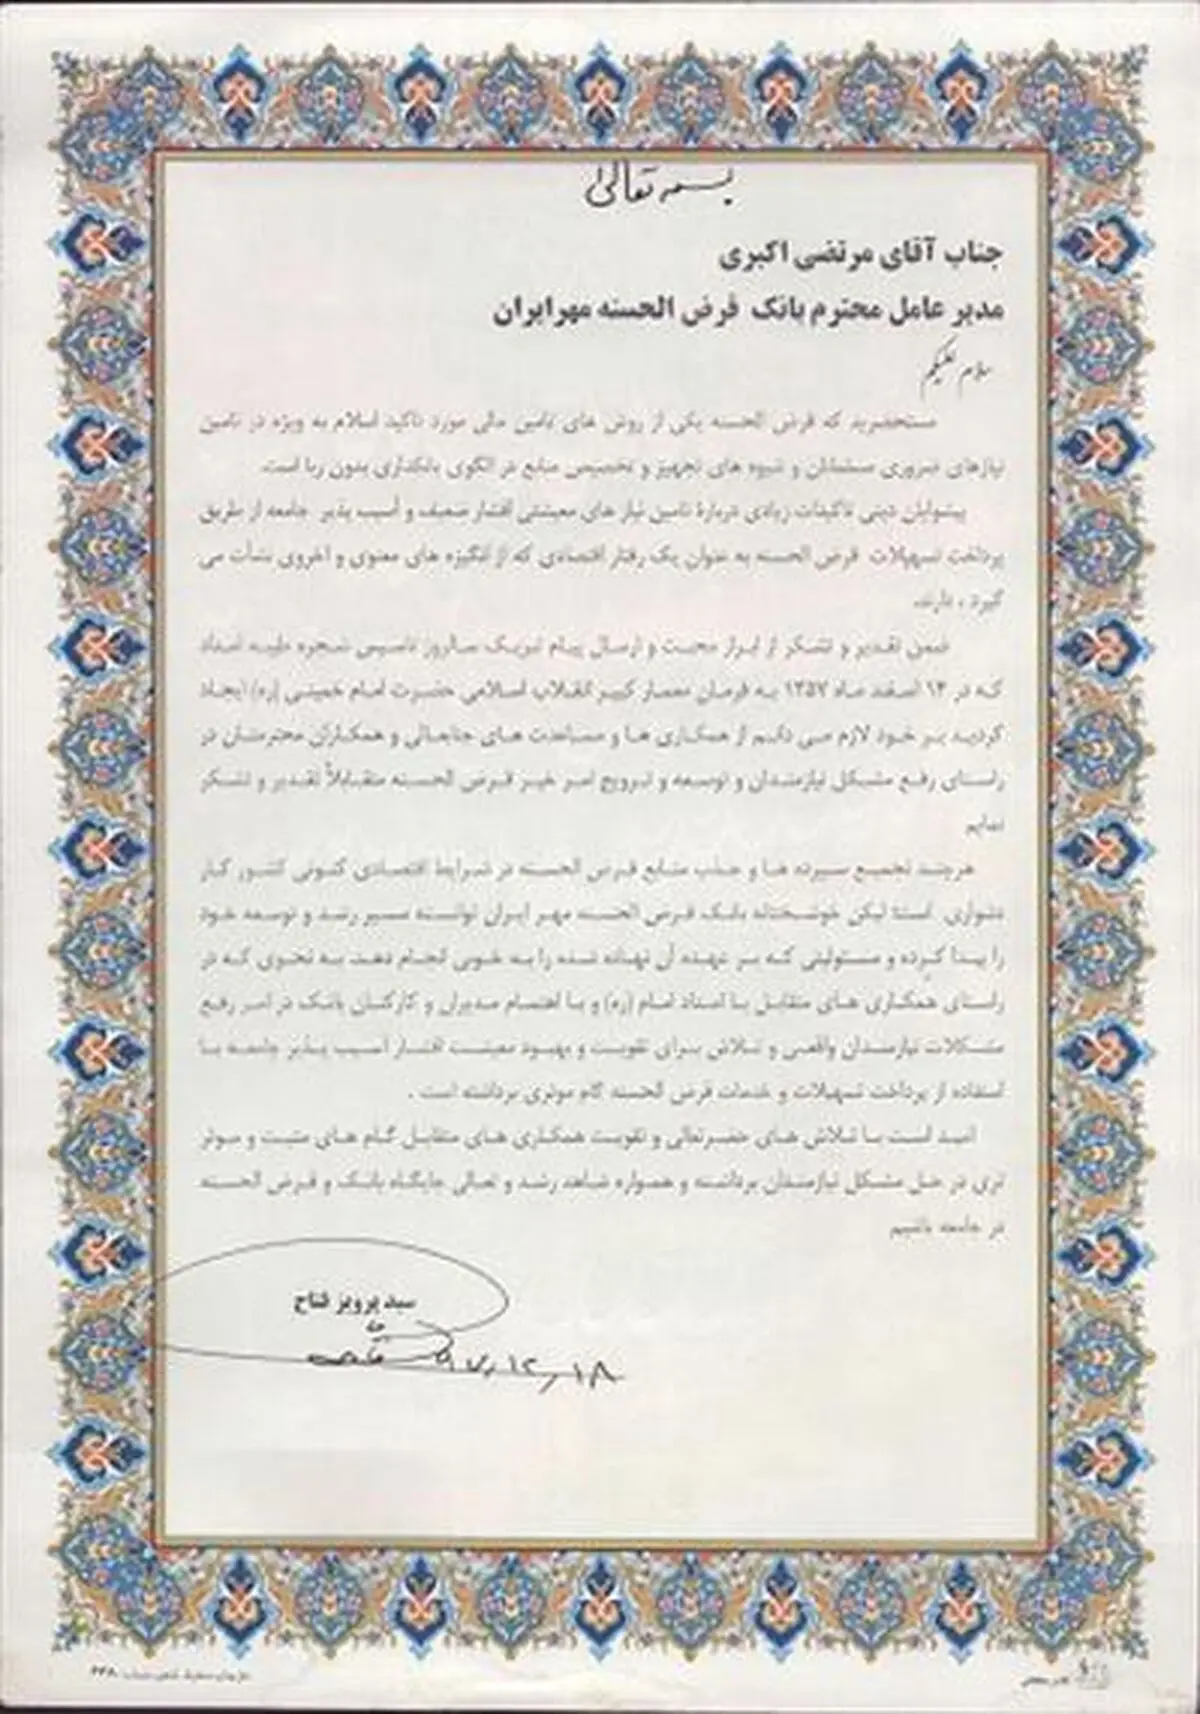 بسمه تعالی
جناب آقای مرتضی اکبری
مدیر عامل محترم بانک قرض الحسنه مهر ایران
سلام علیکم
مستحضرید که قرض الحسنه یکی از روش های تامین مالی مورد تاکید اسلام به ویژه در تامین
نیازهای ضروری مسلمانان و شیوه های تجهیز و تخصیص منابع در الگوی بانکداری بدون ربا است.
پیشوایان دینی تاکیدات زیادی درباره تامین نیاز های معیشتی اقشار ضعیف و آسیب پذیر جامعه از طریق
پرداخت تسهیلات قرض الحسنه به عنوان یک رفتار اقتصادی که از انگیزه های معنوی و اخروی نشأت می
گیرد ، دارند.
ضمن تقدیر و تشکر از ابراز محبت و ارسال پیام تبریک سالروز تاسیس شجره طیبه امداد
که در ۱۴ اسفند ماه ۱۳۵۷ به فرمان معمار کبیر انقلاب اسلامی حضرت امام خمینی (ره) ایجاد
گردید بر خود لازم می دانم از همکاری ها و مساعدت های جنابعالی و همکاران محترمتان در
راستای رفع مشکل نیازمندان و توسعه و ترویج امر خیر قرض الحسنه متقابلاً تقدیر و تشکر
نمایم
هرچند تجمیع سپرده ها و جذب منابع قرض الحسنه در شرایط اقتصادی کنونی کشور کار
دشواری است؛ لیکن خوشبختانه بانک قرض الحسنه مهر ایران توانسته مسیر رشد و توسعه خود
را پیدا کرده و مسئولیتی که بر عهده آن نهاده شده را به خوبی انجام دهد. به نحوی که در
راستای همکاری های متقابل با امداد امام (ره) و با اهتمام مدیران و کارکنان بانک در امر رفع
مشکلات نیازمندان واقعی و تلاش برای تقویت و بهبود معیشت اقشار آسیب پذیر جامعه با
استفاده از پرداخت تسهیلات و خدمات قرض الحسنه گام موثری برداشته است .
امید است با تلاش های حضرتعالی و تقویت همکاری های متقابل گام های مثبت و موثر
تری در حل مشکل نیازمندان برداشته و همواره شاهد رشد و تعالی جایگاه بانک و قرض الحسنه
در جامعه باشیم
سید پرویز فتاح
۹۷٫۱۲٫۱۸